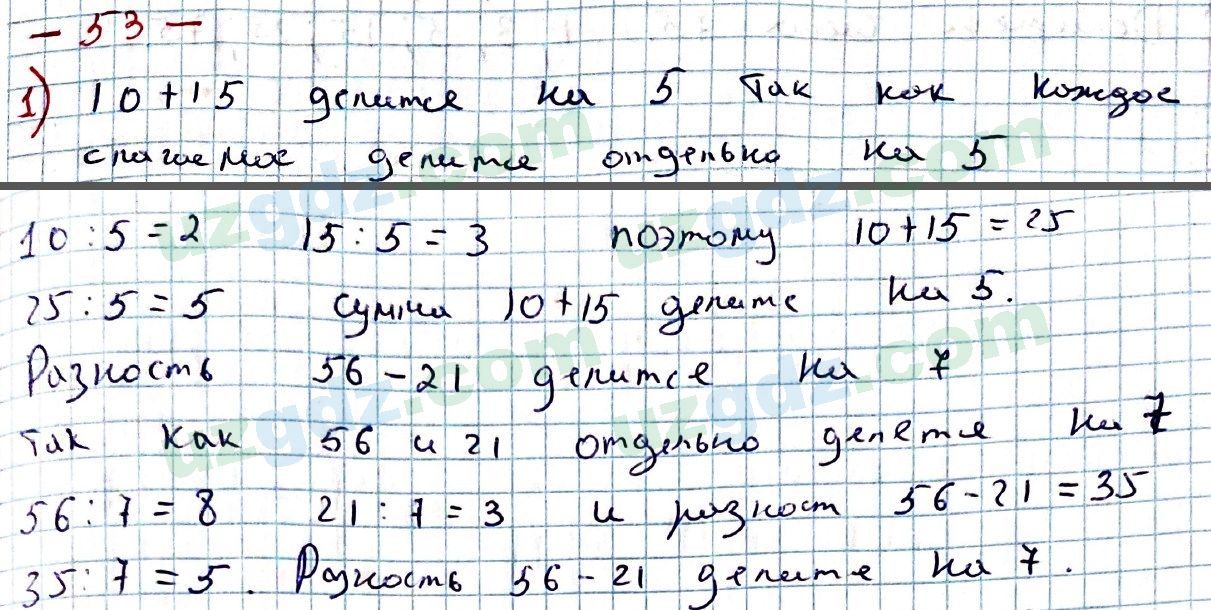 - 53 -
1) 10+15 делится на 5 так как каждое
слагаемое делится отдельно на 5
10 : 5 = 2 15 : 5 = 3 поэтому 10+15 = 25
25 : 5 = 5 сумма 10+15 делитс на 5.
Разность 56 - 21 делится на 7
так как 56 и 21 отдельно делется на 7
56 : 7 = 8 21 : 7 = 3 и разност 56 - 21 = 35
35 : 7 = 5 . Разность 56 - 21 делится на 7 .
uzgdz.com uzgdz.com
uzgdz.com uzgdz.com